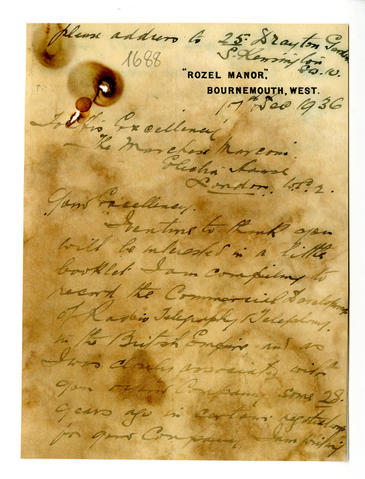 please address to 25 Drayton Gardens
S. Kensington
S.W.
1688
"ROZEL MANOR,"
BOURNEMOUTH, WEST.
17th Dec 1936
To His Excellency
The Marchese Marconi
Electra House
London. W.C.2.
Your Excellency.
I venture to think you
will be interested in a little
booklet I am compiling to
record the Commercial Development
of Radio Telegraphy & Telephony,
in the British Empire and as
I was closely associated with
your Company some 28
years ago in certain negotiations
for your Company, I am